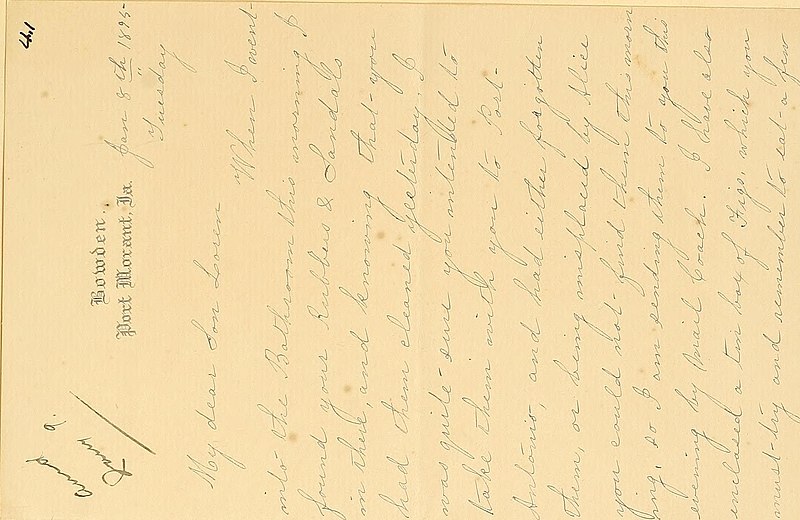 41
Bowden,
Port Morant, Ja.
Jan 8th 1895-
Tuesday
My dear Son Loren
When I went-
into the Bathroom this morning I
found your Rubbers & Sandals
in there, and knowing that- you
had them cleaned yesterday. I
was quite- sure you intended to
take them with you to Port-
Antonio, and had either forgotten
them, or being misplaced by Alice
you could not- find them this morn
ing, so I am sending them to you this
evening by Mail Coach. I have also
enclosed a tin box of Figs, which you
must- try and remember to eat- a few